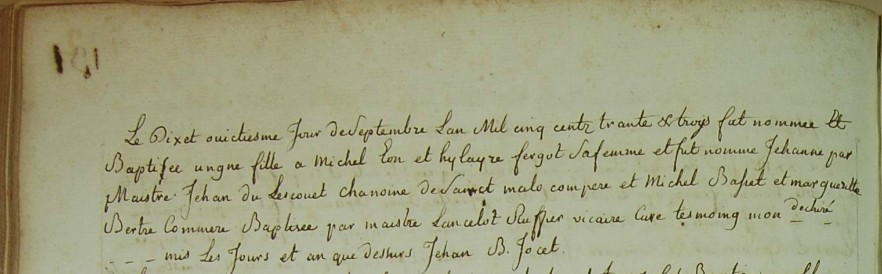 181
Le Dixet ouictiesme Jour de Septembre Lan Mil cinq centz trante & troys fut nommee Et
Baptisee ungne fille a Michel Eon et hylayre fergot Safemme et fut nomme Jehanne par
Maistre Jehan du Lescouet chanoine de Sainct malo compere et Michel Baset et margueritte
Bertre Commere Baptisee par maistre Lancelot vicaire Cure tesmoing mon dechiré
- - - mis Les Jours et an que dessurs Jehan B. Jocet.